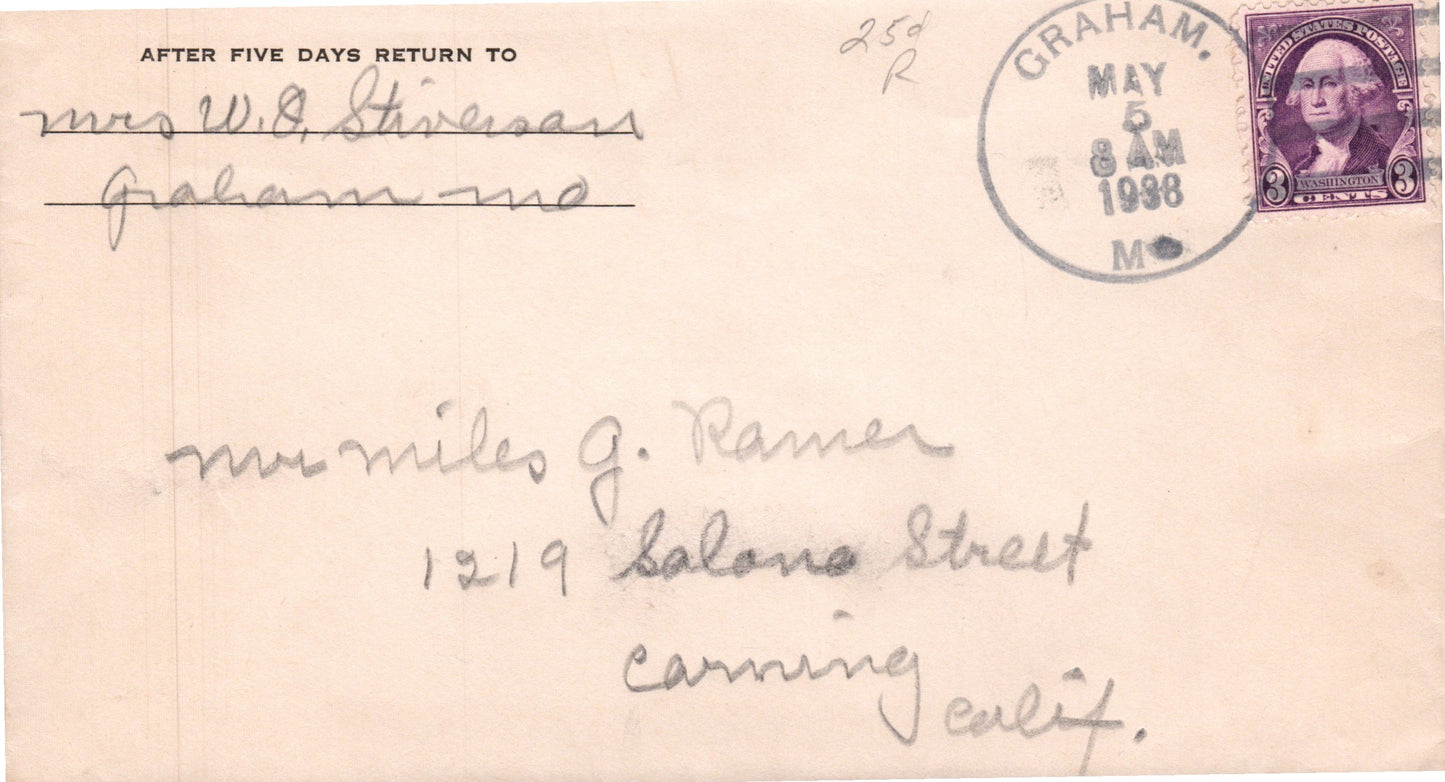 AFTER FIVE DAYS RETURN TO
Mrs W. O. Stiverson
Graham Mo
25d
R
GRAHAM.
MAY
5
8 AM
1938
MO
UNITED STATES POSTAGE
3 WASHINGTON 3
CENTS
Mr Miles G. Ramer
1219 Solano Street
Corning
Calif.